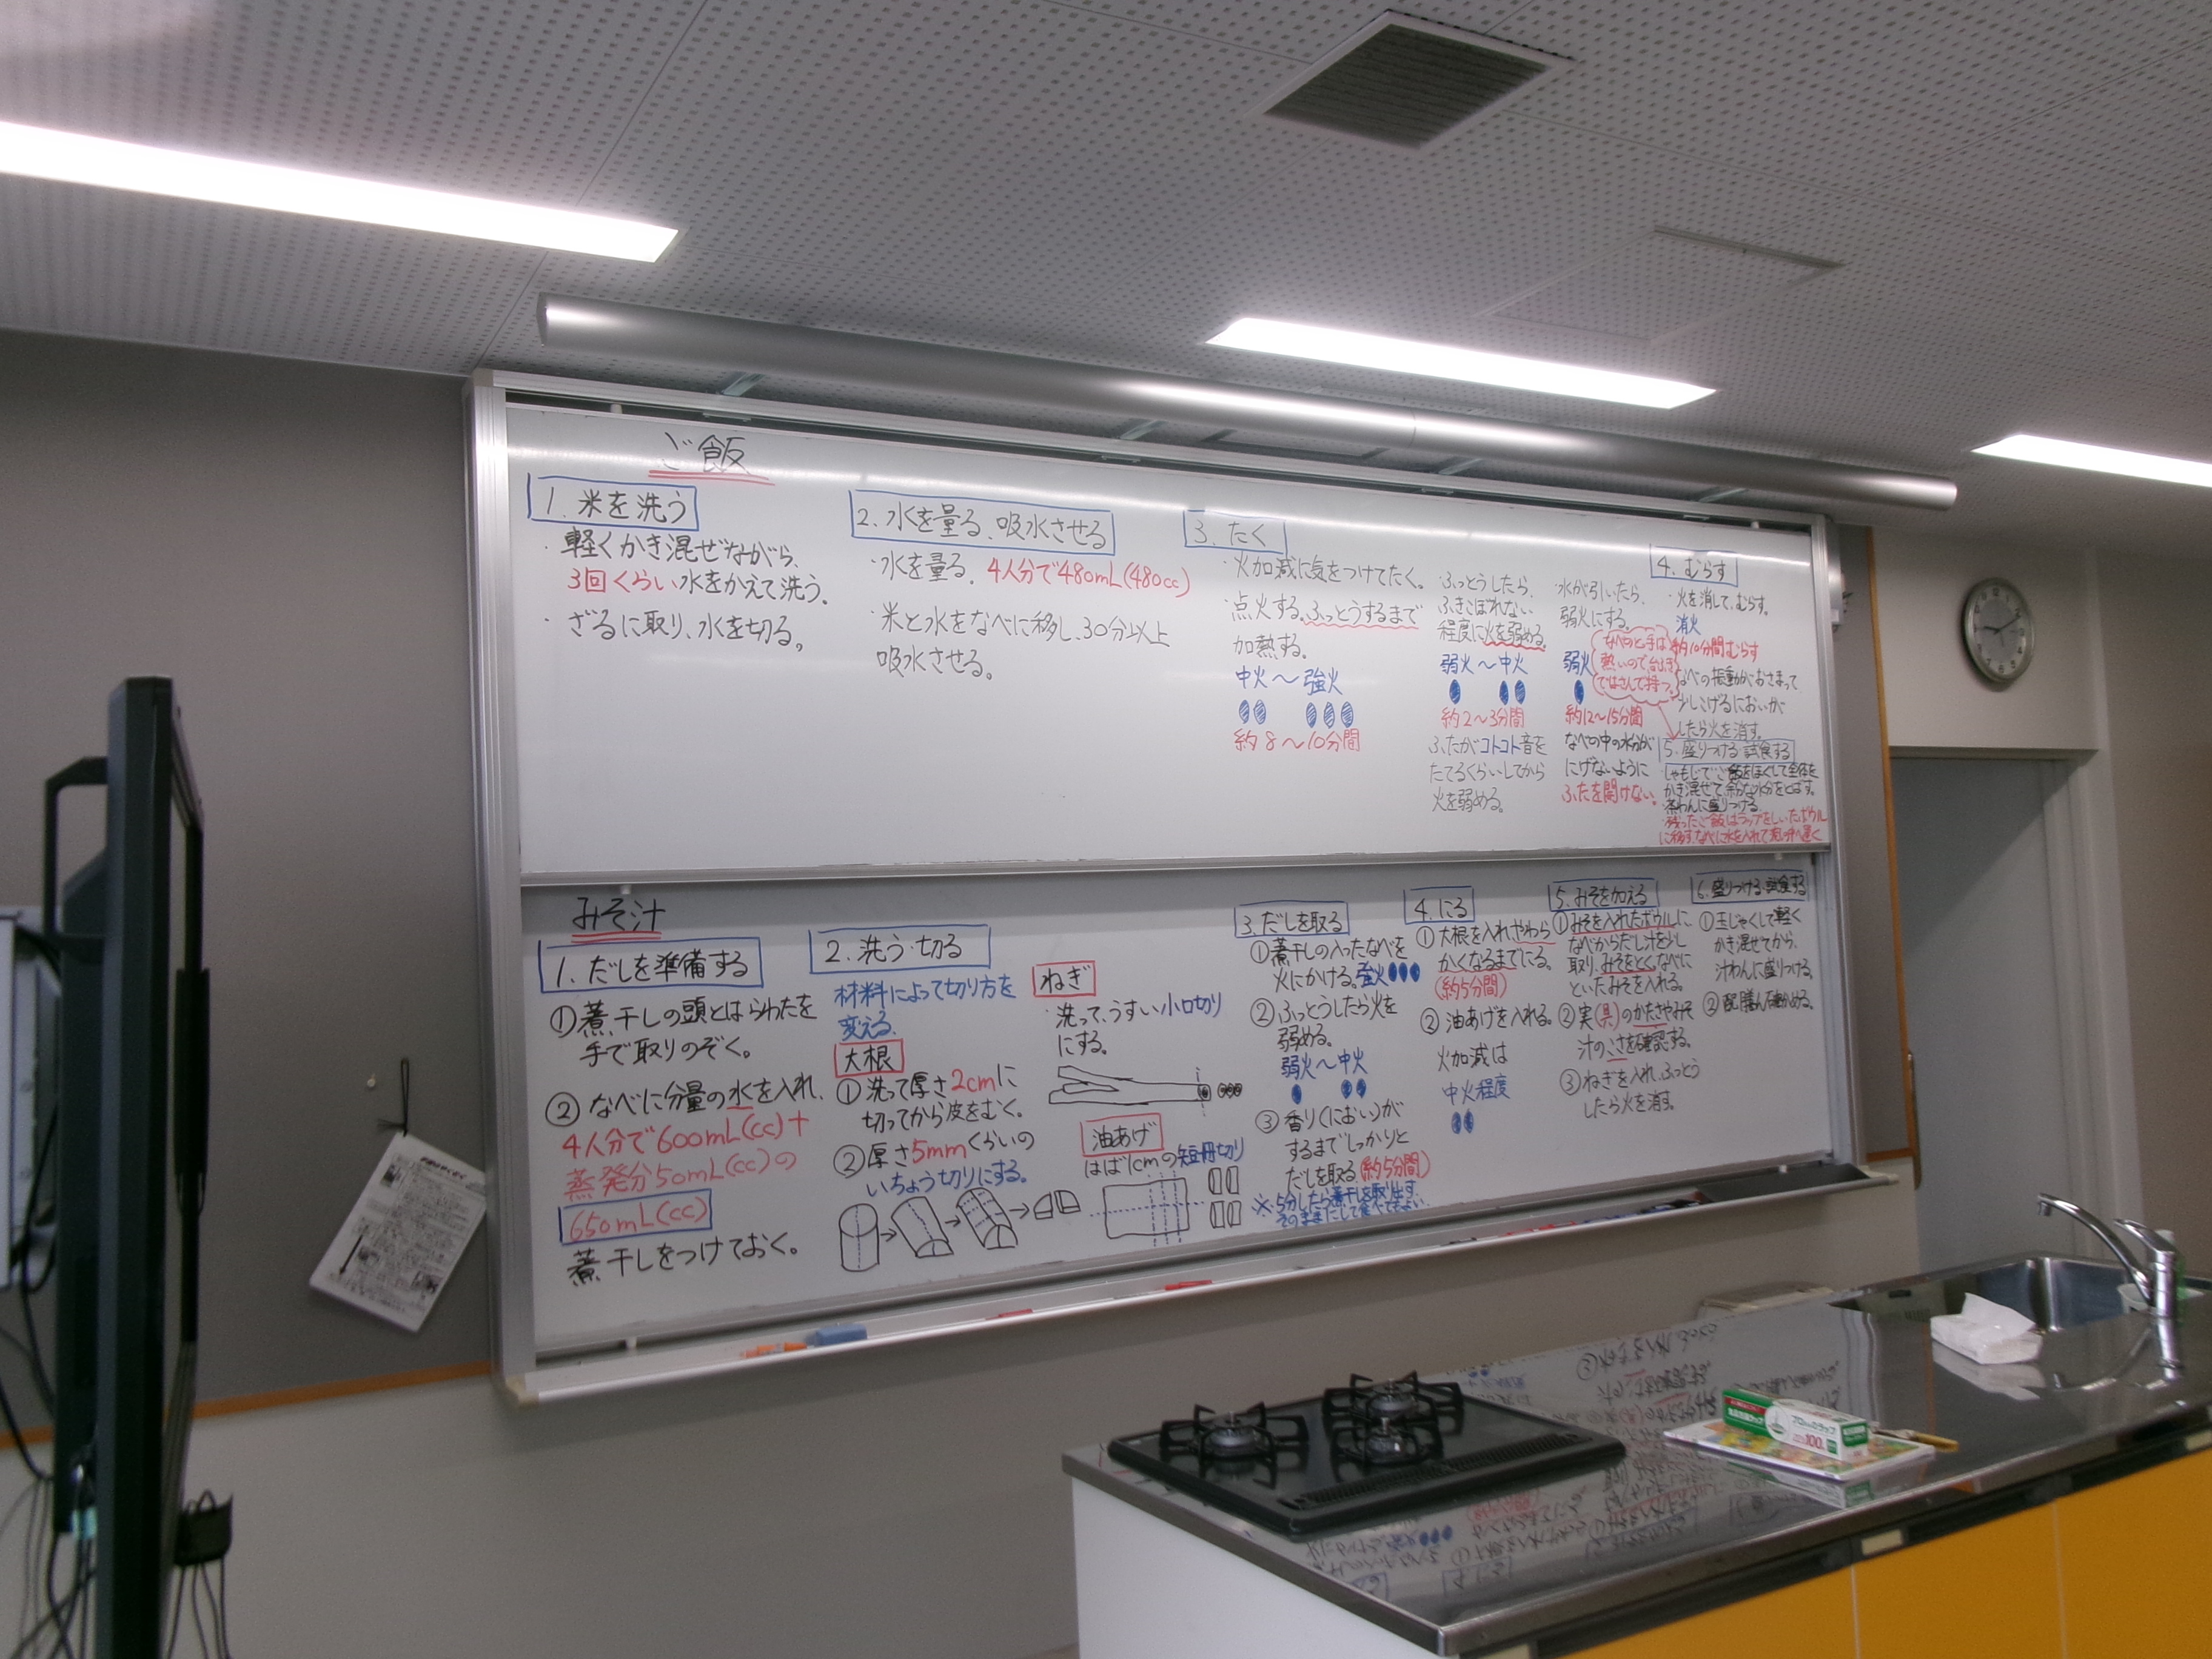 ご飯
1. 米を洗う
・軽くかき混ぜながら、
3回くらい水をかえて洗う。
・ざるに取り、水を切る。
2. 水を量る、吸水させる
・水を量る。4人分で480mL(480cc)
・米と水をなべに移し、30分以上
吸水させる。
3. たく
・火加減に気をつけてたく。
・点火する。ふっとうするまで
加熱する。
中火〜強火
約8〜10分間
・ふっとうしたら、
ふきこぼれない
程度に火を弱める。
弱火〜中火
約2〜3分間
ふたがコトコト音を
たてるくらいしてから
火を弱める。
・水が引いたら、
弱火にする。
弱火
約12〜15分間
なべの中の水分が
にげないように
ふたを開けない。
なべのとっ手は
熱いので、台ふき
ではさんで持つ。
4. むらす
・火を消して、むらす。
消火
約10分間むらす
なべの振動がおさまって
少しこげるにおいが
したら火を消す。
5. 盛りつける・試食する
しゃもじでご飯をほぐして全体を
かき混ぜて余分な水分をとばす。
茶わんに盛りつける。
残ったご飯はラップをしいたボウル
に移す。なべに水を入れて
みそ汁
1. だしを準備する
①煮干しの頭とはらわたを
手で取りのぞく。
②なべに分量の水を入れ、
4人分で600mL(cc)+
蒸発分50mL(cc)の
650mL(cc)
煮干しをつけておく。
2. 洗う・切る
材料によって切り方を
変える。
大根
①洗って厚さ2cmに
切ってから皮をむく。
②厚さ5mmくらいの
いちょう切りにする。
ねぎ
洗って、うすい小口切り
にする。
油あげ
はば1cmの短冊切り
3. だしを取る
①煮干しの入ったなべを
火にかける。強火
②ふっとうしたら火を
弱める。
弱火〜中火
③香り(におい)が
するまでしっかりと
だしを取る(約5分間)
※5分したら煮干しを取り出す。
そのままにして食べてもよい。
4. にる
①大根を入れやわら
かくなるまでにる。
(約5分間)
②油あげを入れる。
火加減は
中火程度
5. みそを加える
①みそを入れたボウルに、
なべからだし汁を少し
取り、みそをとく。なべに
といたみそを入れる。
②実(具)のかたさやみそ
汁のこさを確認する。
③ねぎを入れ、ふっとう
したら火を消す。
6. 盛りつける・試食する
①玉じゃくしで軽く
かき混ぜてから、
汁わんに盛りつける。
100